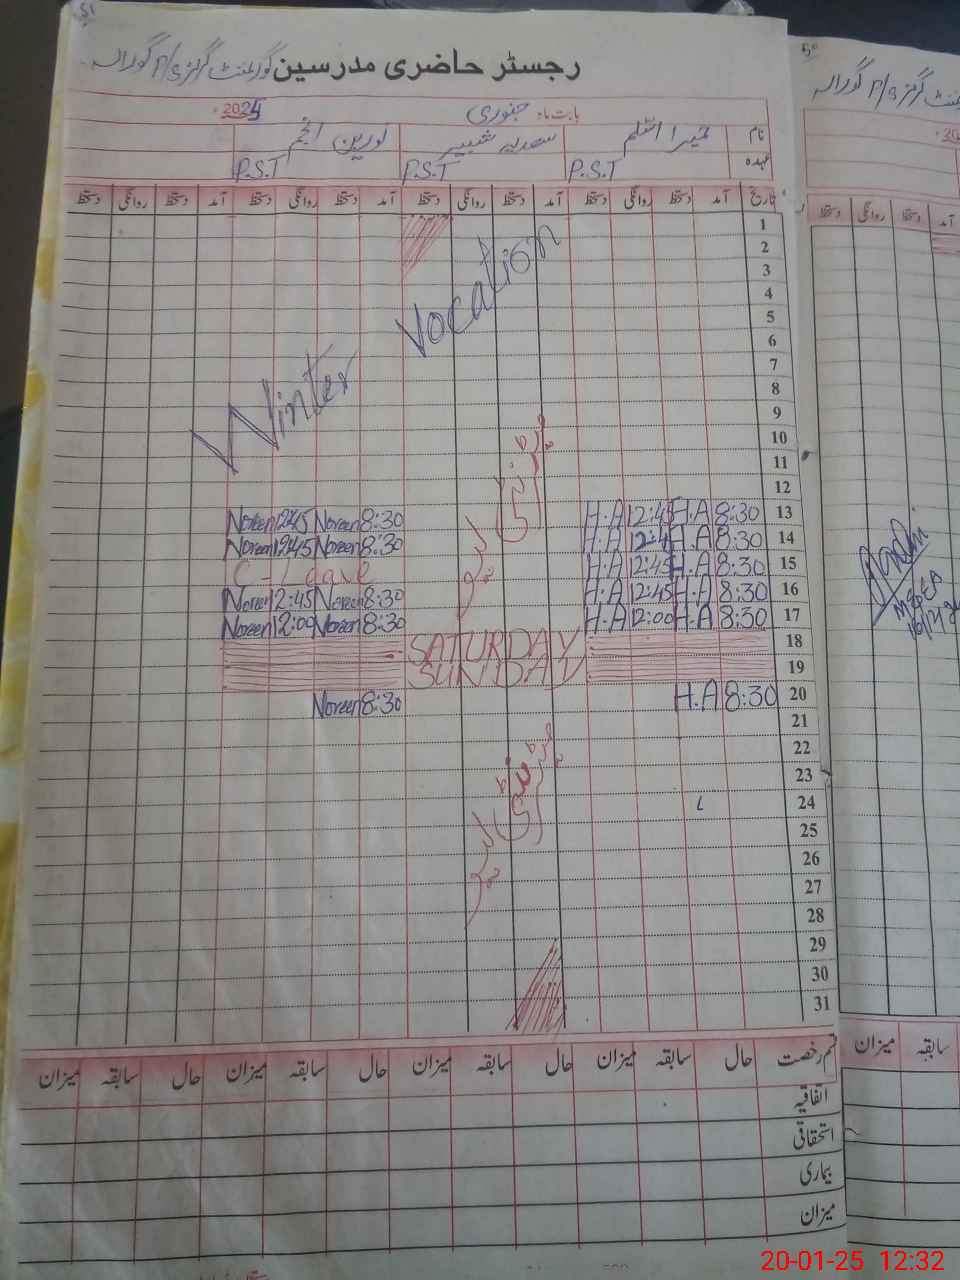 51
رجسٹر حاضری مدرسین گورنمنٹ گرلز P/S گورالہ
بابت ماہ جنوری 2025
نام حمیرا اسلم سعدیہ شبیر نورین انجم
عہدہ P.S.T P.S.T P.S.T
تاریخ آمد دستخط روانگی دستخط آمد دستخط روانگی دستخط آمد دستخط روانگی دستخط آمد دستخط روانگی دستخط
1
2
3
4
5
6
7
8
9
10
11
12
Winter Vocation
13 8:30 H.A 12:45 H.A 8:30 Noreen 12:45 Noreen
14 8:30 H.A 12:4 H.A 8:30 Noreen 12:45 Noreen
15 8:30 H.A 12:45 H.A C-Leave
16 8:30 H.A 12:45 H.A 8:30 Noreen 2:45 Noreen
17 8:30 H.A 12:00 H.A 8:30 Noreen 12:00 Noreen
18 SATURDAY
19 SUNDAY
20 8:30 H.A 8:30 Noreen
21
22
23
24
25
26
27
28
29
30
31
قسم رخصت حال سابقہ میزان حال سابقہ میزان حال سابقہ میزان حال سابقہ میزان
اتفاقیہ
استحقاقی
بیماری
میزان
50
گرلز P/S گورالہ
20
آمد دستخط روانگی دستخط
سابقہ میزان
20-01-25 12:32